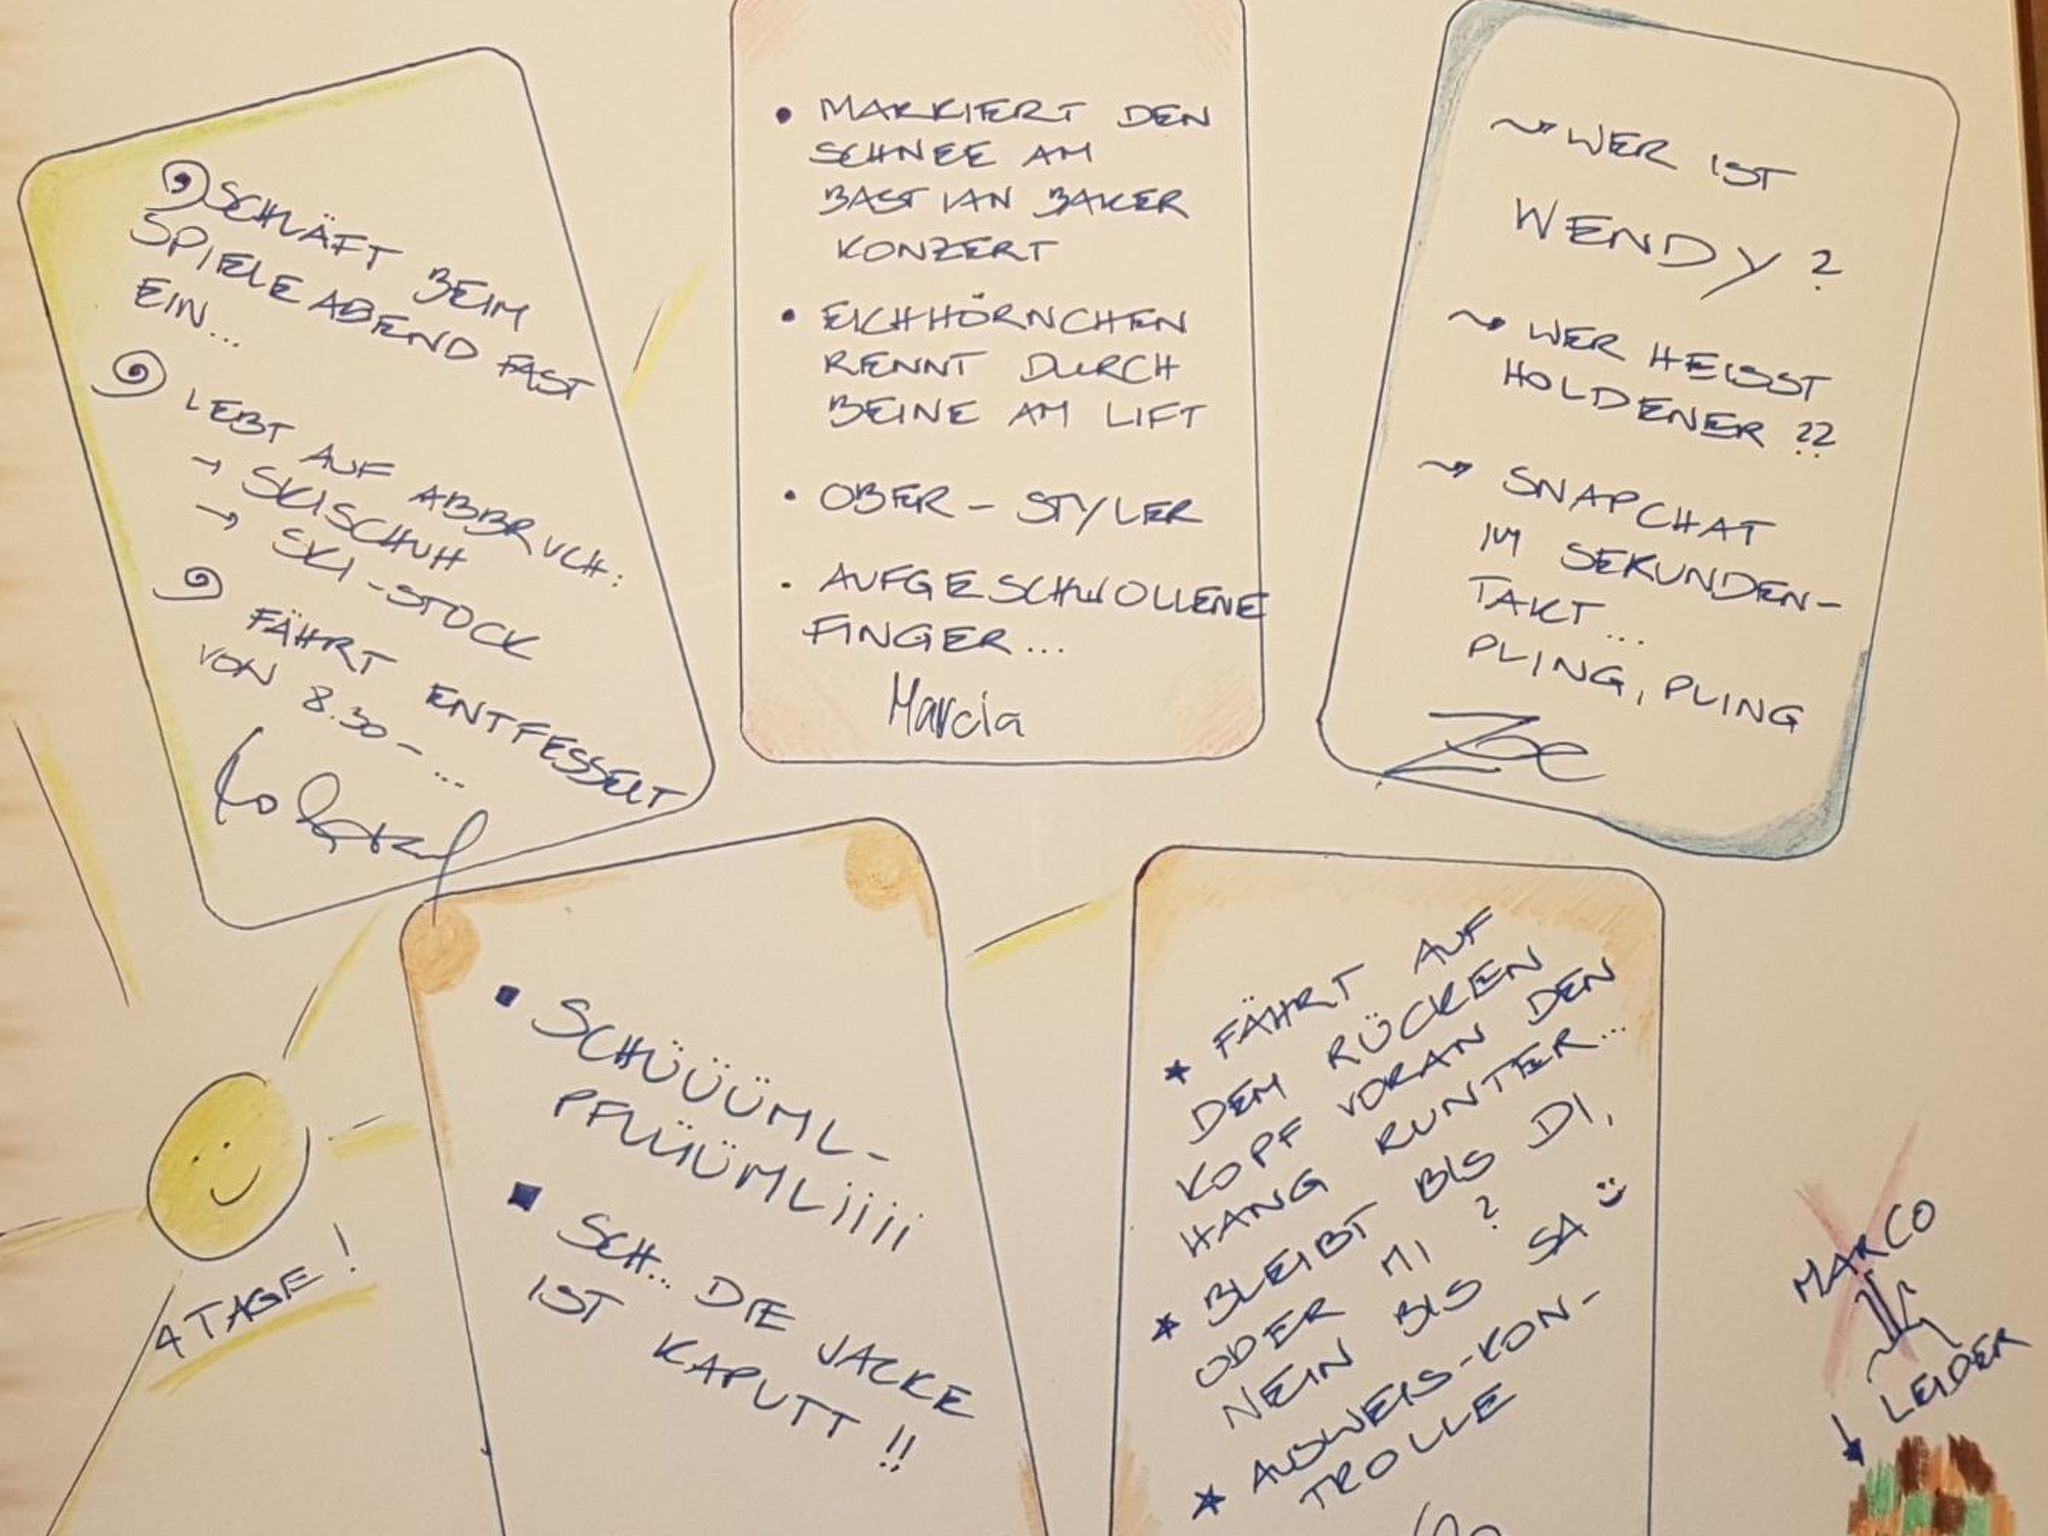 SCHLÄFT BEIM
SPIELEABEND FAST
EIN...
LEBT AUF ABBRUCH:
→ SKISCHUH
→ SKI-STOCK
FÄHRT ENTFESSELT
VON 8.30 - ...
• MARKIERT DEN
SCHNEE AM
BASTIAN BAKER
KONZERT
• EICHHÖRNCHEN
RENNT DURCH
BEINE AM LIFT
• OBER-STYLER
• AUFGESCHWOLLENE
FINGER...
Marcia
WER IST
WENDY?
WER HEISST
HOLDENER??
SNAPCHAT
IM SEKUNDEN-
TAKT...
PLING, PLING
Zoe
4 TAGE!
▪ SCHÜÜÜML-
PFLÜÜÜMLiiii
▪ SCH... DIE JACKE
IST KAPUTT!!
★ FÄHRT AUF
DEM RÜCKEN
KOPF VORAN DEN
HANG RUNTER...
★ BLEIBT BIS DI,
ODER MI?
NEIN BIS SA
★ AUSWEIS-KON-
TROLLE
MARCO
LEIDER